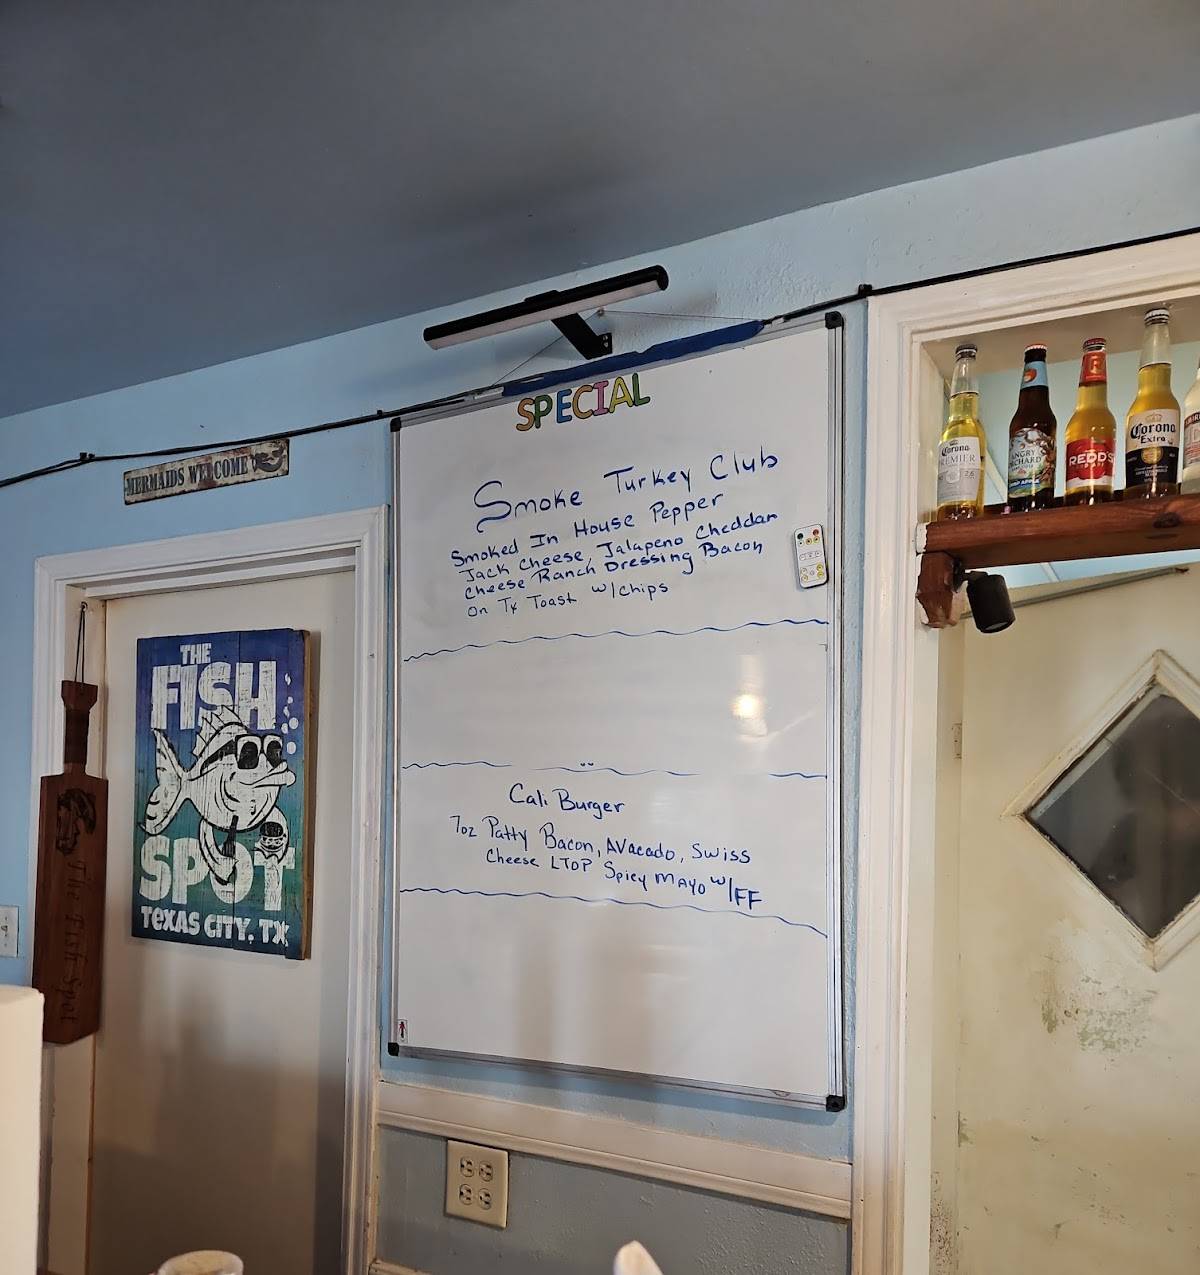 SPECIAL
Smoke Turkey Club
Smoked In House Pepper
Jack Cheese, Jalapeno Cheddar
Cheese Ranch Dressing Bacon
On Tx Toast w/chips
Cali Burger
7oz Patty Bacon, AVacado, Swiss
Cheese LTOP Spicy Mayo w/FF
MERMAIDS WELCOME
THE
FISH
SPOT
TEXAS CITY, TX
The Fish Spot
Corona
PREMIER
ANGRY
ORCHARD
REDD'S
Corona
Extra